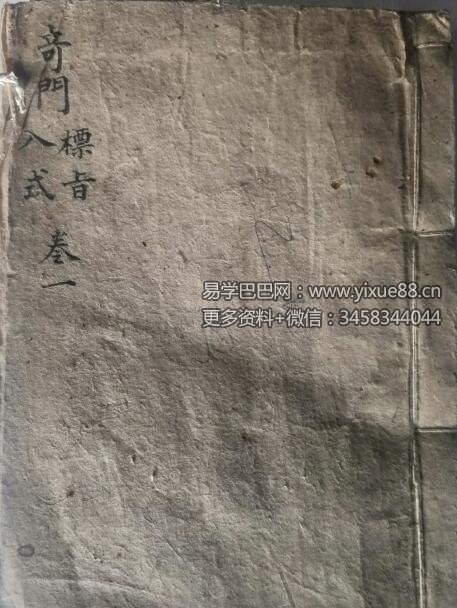 奇門
標旨
入式
卷一
易学巴巴网：www.yixue88.cn
更多资料+微信：3458344044